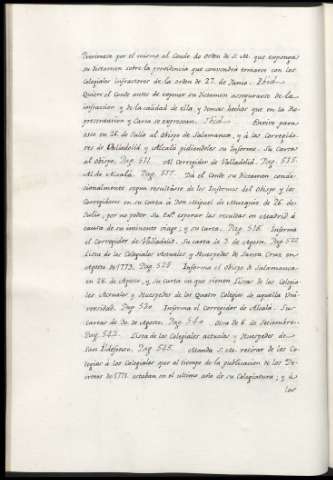 Previenese por el mismo al Conde de orden de S. M. que exponga
su dictamen sobre la providencia que convendrá tomarse con los
Colegiales infractores de la orden de 27. de Junio. Ibid.
Quiere el Conde antes de exponer su Dictamen asegurarse de la
infraccion y de la calidad de ella, y demas hechos que en la Re-
presentacion y Carta se expresan. Ibid. Envia para
esto en 26. de Julio al Obispo de Salamanca, y à los Corregido-
res de Valladolid y Alcalá pidiendoles su Informe. Su Carta
al Obispo. Pag. 511. Al Corregidor de Valladolid. Pag. 515.
Al de Alcalá. Pag. 517. Dá el Conde su Dictamen condi-
cionalmente segun resultáre de los Informes del Obispo y los
Corregidores en su carta à Don Miguel de Muzquiz de 26. de
Julio, por no poder su Exã. esperar las resultas en Madrid à
causa de su inminente viage; y su Carta. Pag. 518. Informa
el Corregidor de Valladolid. Su carta de 3. de Agosto. Pag. 522
Lista de los Colegiales actuales y Huespedes de Santa Cruz en
Agosto de 1773. Pag. 528. Informa el Obispo de Salamanca
en 28. de Agosto, y su Carta en que vienen Listas de los Colegia-
les Actuales y Huespedes de los Quatro Colegios de aquella Uni-
versidad. Pag. 530. Informa el Corregidor de Alcalá. Su
Carta de 30. de Agosto. Pag. 540. Otra de 6. de Setiembre.
Pag. 543. Lista de los Colegiales actuales y Huespedes de
San Ildefonso. Pag. 545. Manda S. M. retirar de los Co-
legios à los Colegiales que al tiempo de la publicacion de los De-
cretos de 1771. estaban en el ultimo año de su Colegiatura; y à
los